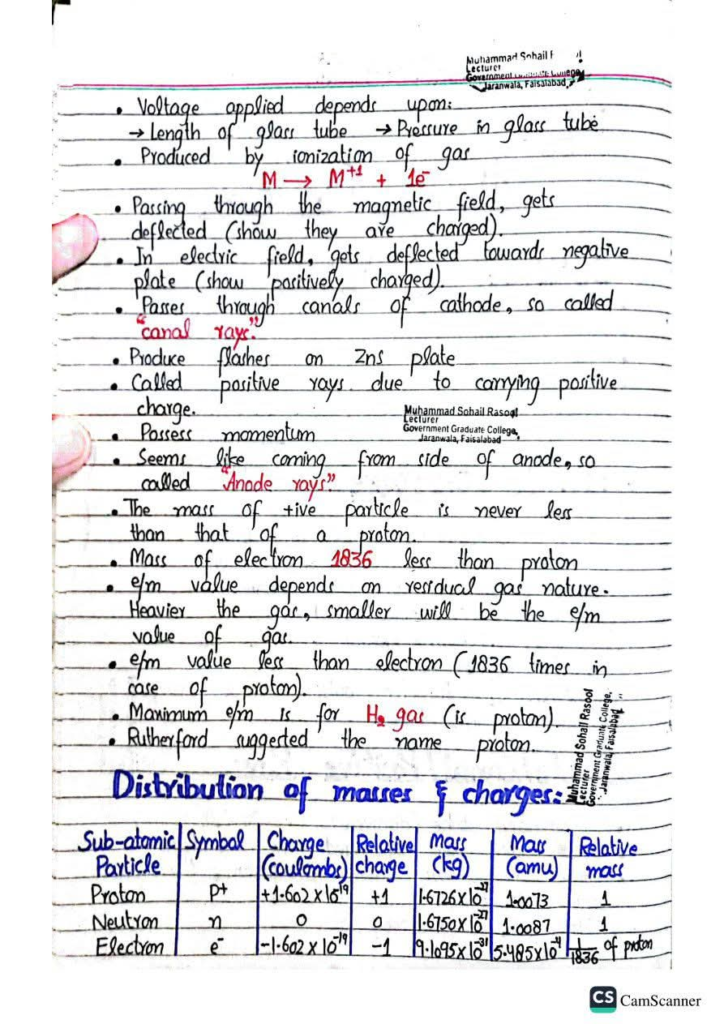 Muhammad Sohail R
Lecturer
Government Graduate College,
Jaranwala, Faisalabad
• Voltage applied depends upon:
→ Length of glass tube → Pressure in glass tube
• Produced by ionization of gas
M → M⁺¹ + 1e⁻
• Passing through the magnetic field, gets
deflected (show they are charged).
• In electric field, gets deflected towards negative
plate (show positively charged).
• Passes through canals of cathode, so called
"canal rays."
• Produce flashes on Zns plate
• Called positive rays due to carrying positive
charge.
Muhammad Sohail Rasool
Lecturer
Government Graduate College,
Jaranwala, Faisalabad
• Possess momentum
• Seems like coming from side of anode, so
called "Anode rays"
• The mass of +ive particle is never less
than that of a proton.
• Mass of electron 1836 less than proton
• e/m value depends on residual gas nature.
Heavier the gas, smaller will be the e/m
value of gas.
• e/m value less than electron (1836 times in
case of proton).
• Maximum e/m is for H₂ gas (is proton)
• Rutherford suggested the name proton.
Muhammad Sohail Rasool
Lecturer
Government Graduate College,
Jaranwala, Faisalabad
Distribution of masses & charges:
Sub-atomic Particle | Symbol | Charge (coulombs) | Relative charge | Mass (kg) | Mass (amu) | Relative mass
Proton | P⁺ | +1.602 x 10⁻¹⁹ | +1 | 1.6726x10⁻²⁷ | 1.0073 | 1
Neutron | n | 0 | 0 | 1.6750x10⁻²⁷ | 1.0087 | 1
Electron | e⁻ | -1.602 x 10⁻¹⁹ | -1 | 9.1095x10⁻³¹ | 5.485x10⁻⁴ | 1/1836 of proton
CS CamScanner